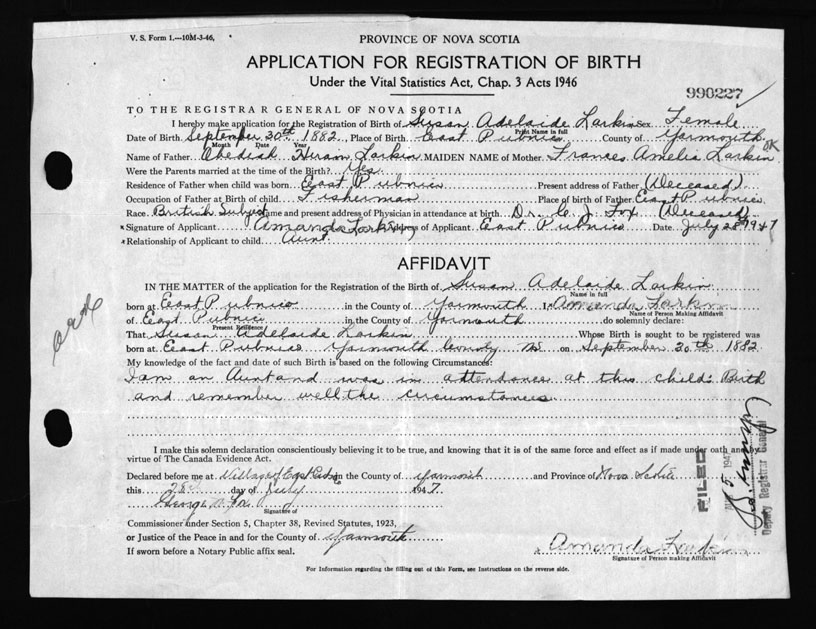 V. S. Form 1.—10M-3-46,
PROVINCE OF NOVA SCOTIA
APPLICATION FOR REGISTRATION OF BIRTH
Under the Vital Statistics Act, Chap. 3 Acts 1946
990227
TO THE REGISTRAR GENERAL OF NOVA SCOTIA
I hereby make application for the Registration of Birth of Susan Adelaide Larkin Sex Female
Print Name in full
Date of Birth September 30th 1882 Place of Birth East Pubnico County of Yarmouth OK
Month Date Year
Name of Father Obediah Hiram Larkin MAIDEN NAME of Mother Frances Amelia Larkin
Were the Parents married at the time of the Birth? Yes
Residence of Father when child was born East Pubnico Present address of Father (Deceased)
Occupation of Father at Birth of Child Fisherman Place of birth of Father East Pubnico
Race British Subject Name and present address of Physician in attendance at birth Dr. C. J. Fox (Deceased)
*Signature of Applicant Amanda Larkin Address of Applicant East Pubnico Date July 28th 1947
*Relationship of Applicant to child Aunt
AFFIDAVIT
IN THE MATTER of the application for the Registration of the Birth of Susan Adelaide Larkin
Name in full
born at East Pubnico in the County of Yarmouth I, Amanda Larkin
Name of Person Making Affidavit
of East Pubnico in the County of Yarmouth do solemnly declare:
Present Residence
That Susan Adelaide Larkin Whose Birth is sought to be registered was
born at East Pubnico Yarmouth County NS on September 30th 1882
My knowledge of the fact and date of such Birth is based on the following Circumstances:
I am an Aunt and was in attendance at this child's Birth
and remember well the circumstances
I make this solemn declaration conscientiously believing it to be true, and knowing that it is of the same force and effect as if made under oath and by
virtue of The Canada Evidence Act.
Declared before me at Village of East Pubnico in the County of Yarmouth and Province of Nova Scotia
this 28 day of July 1947.
George
Signature of
Commissioner under Section 5, Chapter 38, Revised Statutes, 1923,
or Justice of the Peace in and for the County of Yarmouth
If sworn before a Notary Public affix seal.
Amanda Larkin
Signature of Person making Affidavit
For Information regarding the filling out of this Form, see Instructions on the reverse side.
FILED
Deputy Registrar General